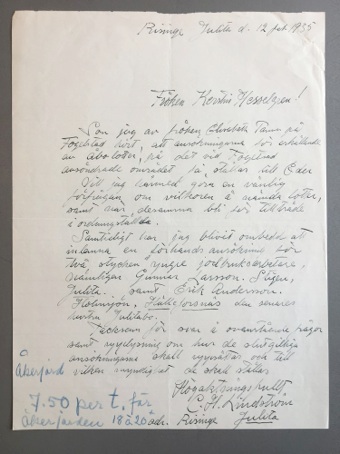 Risinge Julita d. 12 feb. 1935
Fröken Kerstin Hesselgren!
Som jag av fröken Elisabeth Tamm på
Fogelstad hört, att ansökningarna för erhållande
av lotter, på det vid Fogelstad
området skall ställas till Eder
Vill jag härmed göra en vänlig
förfrågan om villkoren å nämnda lotter,
samt när desamma bli för tillträde
i ordningställda.
Samtidigt har jag blivit ombedd att
inlämna en förhands ansökning för
två stycken yngre jordbruksarbetare,
nämligen Gunnar Larsson. Stigen,
Julita. samt Erik Andersson.
Holmsjön, den senares
Julitabo.
Tacksam för svar å ovanstående frågor
samt upplysning om hur de slutgiltiga
ansökningarna skall uppsättas och till
vilken myndighet de skall ställas
Högaktningsfullt
C. H. Lindström
Risinge Julita
Åkerjord
7.50 per t. för
åkerjorden 18 à 20 år.